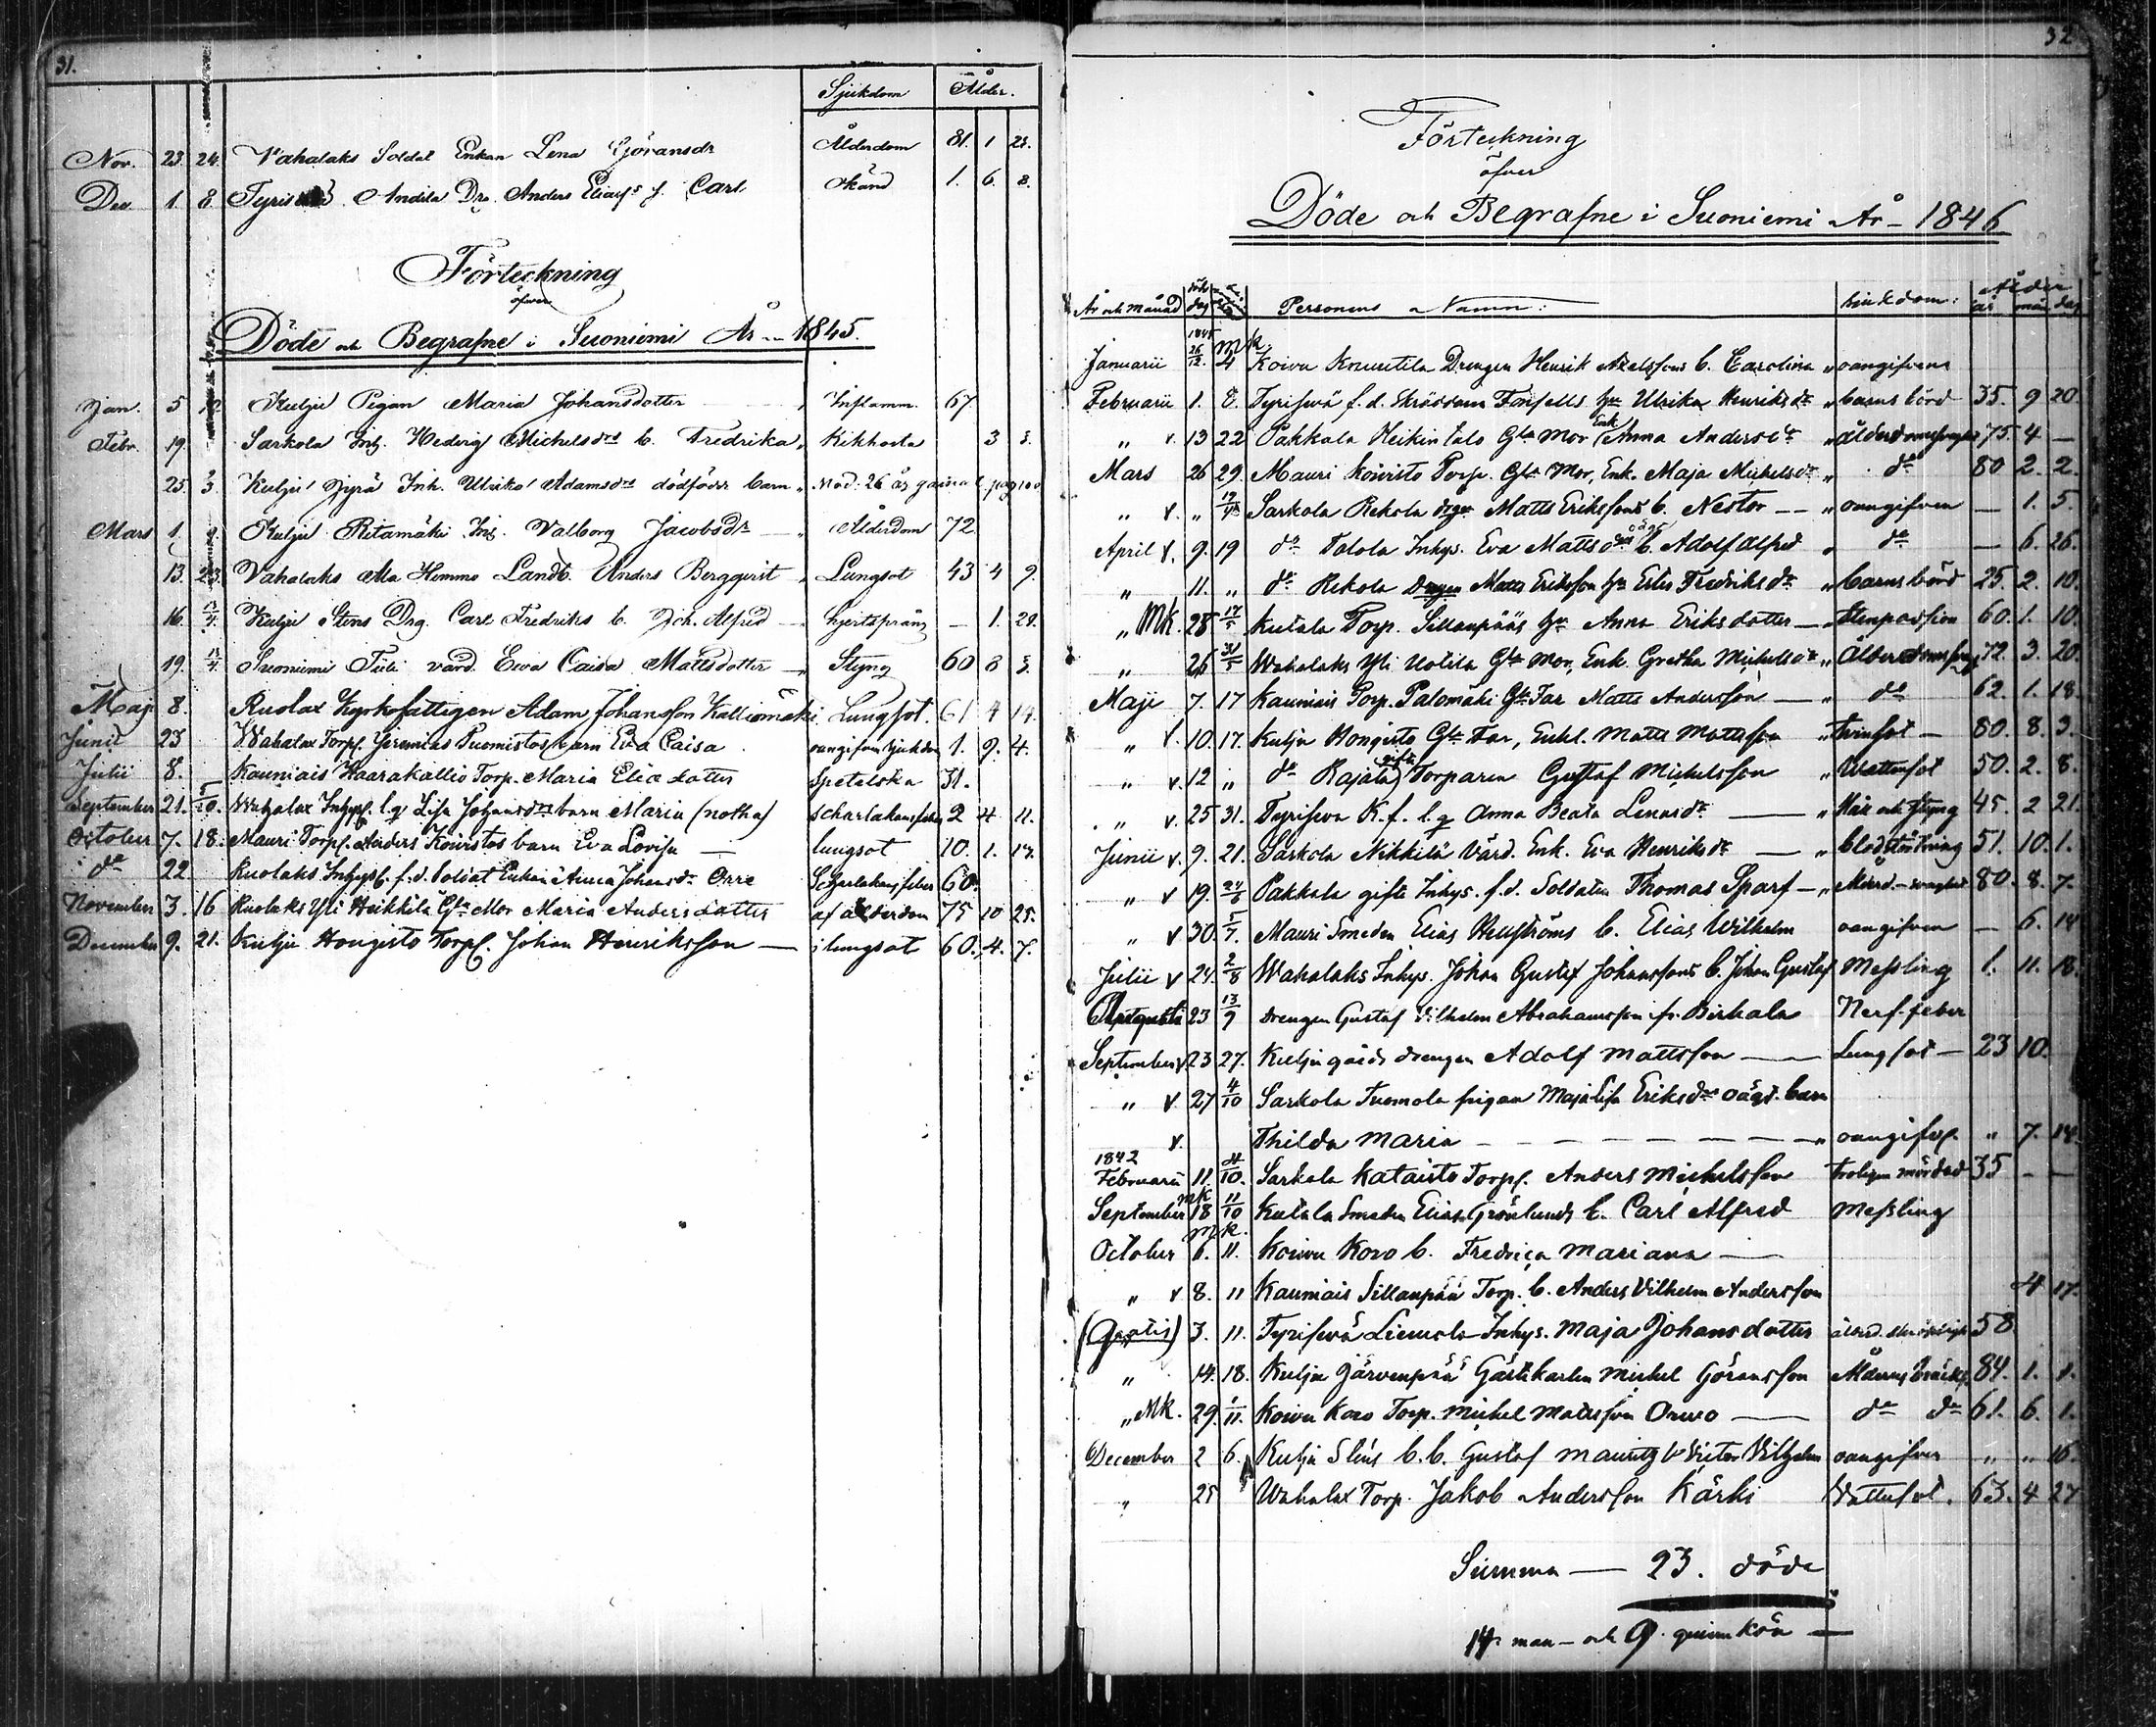 31.
Sjukdom Ålder.
Nov. 23. 24. Vahalaks Soldat Enkan Lena Göransdr Ålderdom 81. 1
Dec. 1. 8. Anders Carl okänd 1. 6. 8.
Förteckning
öfver
Döde och Begrafne i Suoniemi År 1845.
Jan. 5 Kulju Pigan Maria Johansdotter Inflamm. 67
Febr. 19. Sarkola Inh. Hedvig Michelsdrs b. Fredrika Kikhosta 3
25. 3. Kulju Jyrä Inh. Ulrika Adamsdrs dödfödt barn Mod. 26 år
Mars 1. Kulju Ritamäki Inh. Valborg Jacobsdr Ålderdom 72
13. 23. Vahalaks Ala Hemmo Landb. Anders Bergqvist Lungsot 43 4 9.
16. 13/4 Kulju Stens Drg. Carl Fredriks b. Joh. Alfred — 1. 28.
19. 13/4 Suoniemi värd. Ewa Caisa Mattsdotter Styng 60 8
Maji 8. Kyrkofattigen Adam Johansson Kalliomäki Lungsot. 61 4 14
Junii 23 Wahalax Torp. Jeremias Puomistos barn Eva Caisa oangifven sjukdom 1. 9. 4.
Julii 8. Kauniais Haarakallio Torp. Maria Eliædotter Spetelska 31.
September 21. 5/10. Wahalax Inhys. l.q. Lisa Johansdrs barn Maria (notha) Scharlakansfeber 2 4 11.
October 7. 18. Mauri Torp. Anders Koivistos barn Eva Lovisa — lungsot 10. 1. 17.
do 22 Kuolaks Inhys. f.d. Soldat Enkan Anna Johansdr Orre Scharlakansfeber 60.
November 3. 16 Kuolaks Yli Heikkilä Gla Mor Maria Andersdotter af ålderdom 75 10 25.
December 9. 21. Kulju Hongisto Torp. Johan Henriksson — lungsot 60. 4. 7.
32
Förteckning
öfver
Döde och Begrafne i Suoniemi År — 1846
År och månad dag Personens Namn: Sjukdom: Ålder år mån dag
1845
Januarii 26/12. 4 Koivu Knuutila Drengen Henrik Axelssons b. Carolina oangifven
Februarii 1. 8. Tyrisevä f.d. Skräddaren Forsells hu Ulrika Henriksdr barnsbörd 35. 9 20.
Enk.
" v. 13 22 Pakkala Heikintalo Gla Mor Anna Andersdr 75. 4 —
Mars 26 29 Mauri Koivisto Torp. Gla Mor, Enk. Maja Michelsdr do 80 2. 2.
" v. " Sarkola Rekola drgn Matts Erikssons b. Nestor — oangifven — 1. 5.
April v. 9. 19 do Talola Inhys. Eva Mattsdrs b. Adolf Alfred do — 6. 26.
" 11. " do Rekola Drgen Matts Eriksson hu Fredriksdr barnsbörd 25. 2. 10.
" Mk. 28 17/5 Kutala Torp. Sillanpääs hu Anna Eriksdotter — Stenpassion 60. 1. 10.
" 26 31/5 Wahalaks Yli Uotila Gla Mor, Enk. Gretha Michelsdr 72. 3. 20
Maji 7. 17 Kauniais Torp. Palomäki Gle Far Matts Andersson — do 62. 1. 18.
" v. 10. 17. Kulju Hongisto Gle Far, Enkl. Matts Mattsson Tvinsot — 80. 8. 3.
gifte
" v. 12 " do Rajala Torparen Gustaf Michelsson Wattusot 50. 2. 8.
" v. 25 31. Tyrisevä K.f. l.q. Anna Beata Lenasdr — och styng 45. 2 21.
Junii v. 9. 21. Sarkola Nikkilä Värd. Enk. Eva Henriksdr — blodstörtning 51. 10. 1.
" v 19. Pakkala gifte Inhys. f.d. Soldaten Thomas Sparf — 80. 8. 7.
" v 30. 5/7. Mauri Smeden Elias Hellströms b. Elias Wilhelm oangifven — 6. 14
Julii v 24. 2/8 Wahalaks Inhys. Johan Gustaf Johanssons b. Johan Gustaf Messling 1. 11. 18.
Augusti 23 13/9 Drengen Gustaf Vilhelm Abrahamsson fr. Birkala Nerf-feber
September v 23 27. Kulju gårds drengen Adolf Mattsson — Lungsot — 23 10.
" v 27 4/10 Sarkola Tuomola pigan Maja Lisa Eriksdrs oägt. barn
v. Thilda Maria — oangifvf. " 7. 14.
1842
Februarii 11. 4/10. Sarkola Kataisto Torp. Anders Michelsson troligen mördad 35 — —
mk
September 18 11/10 Kutala Smeden Elias Grönlunds b. Carl Alfred Messling
mk.
October 6. 11. Koivu Koro b. Fredrica Mariana —
" v 8. 11 Kauniais Sillanpää Torp. b. Anders Vilhelm Andersson 4 17.
(Gratis) 3. 11. Tyrisevä Liemola Inhys. Maja Johansdotter 58
" 14. 18. Kulju Järvenpää Gästkarlen Michel Göransson 84. 1. 1.
" Mk. 29. 1/11. Koivu Koro Torp. Michel Mattsson Orwo — do do 61. 6. 1.
December 2 6. Kulju Stens b.b. Gustaf Mauritz & Victor Vilhelm oangifven " " 16.
" 25 Wahalax Torp. Jakob Andersson Kärki Wattusot. 63. 4 27
Summa — 23. döde
14 man — och 9. qvinnkön —